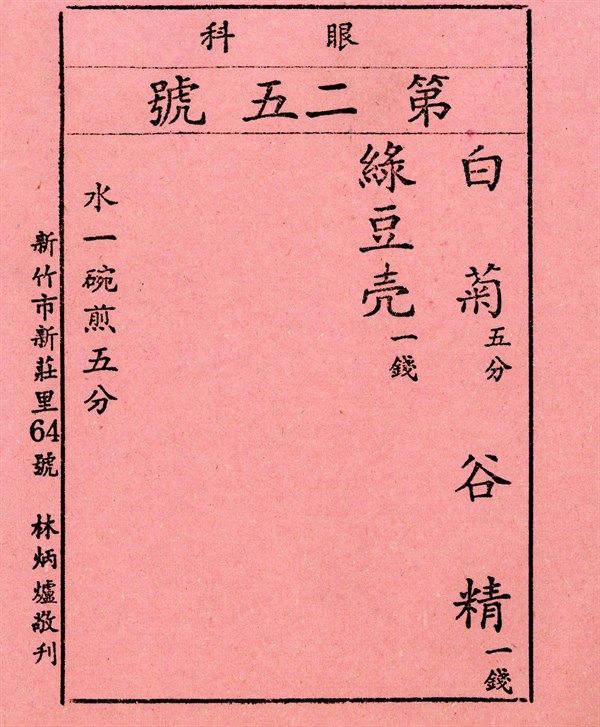 眼科
第二五號
白菊五分 谷精一錢
綠豆壳一錢
水一碗煎五分
新竹市新莊里64號 林炳爐敬刊